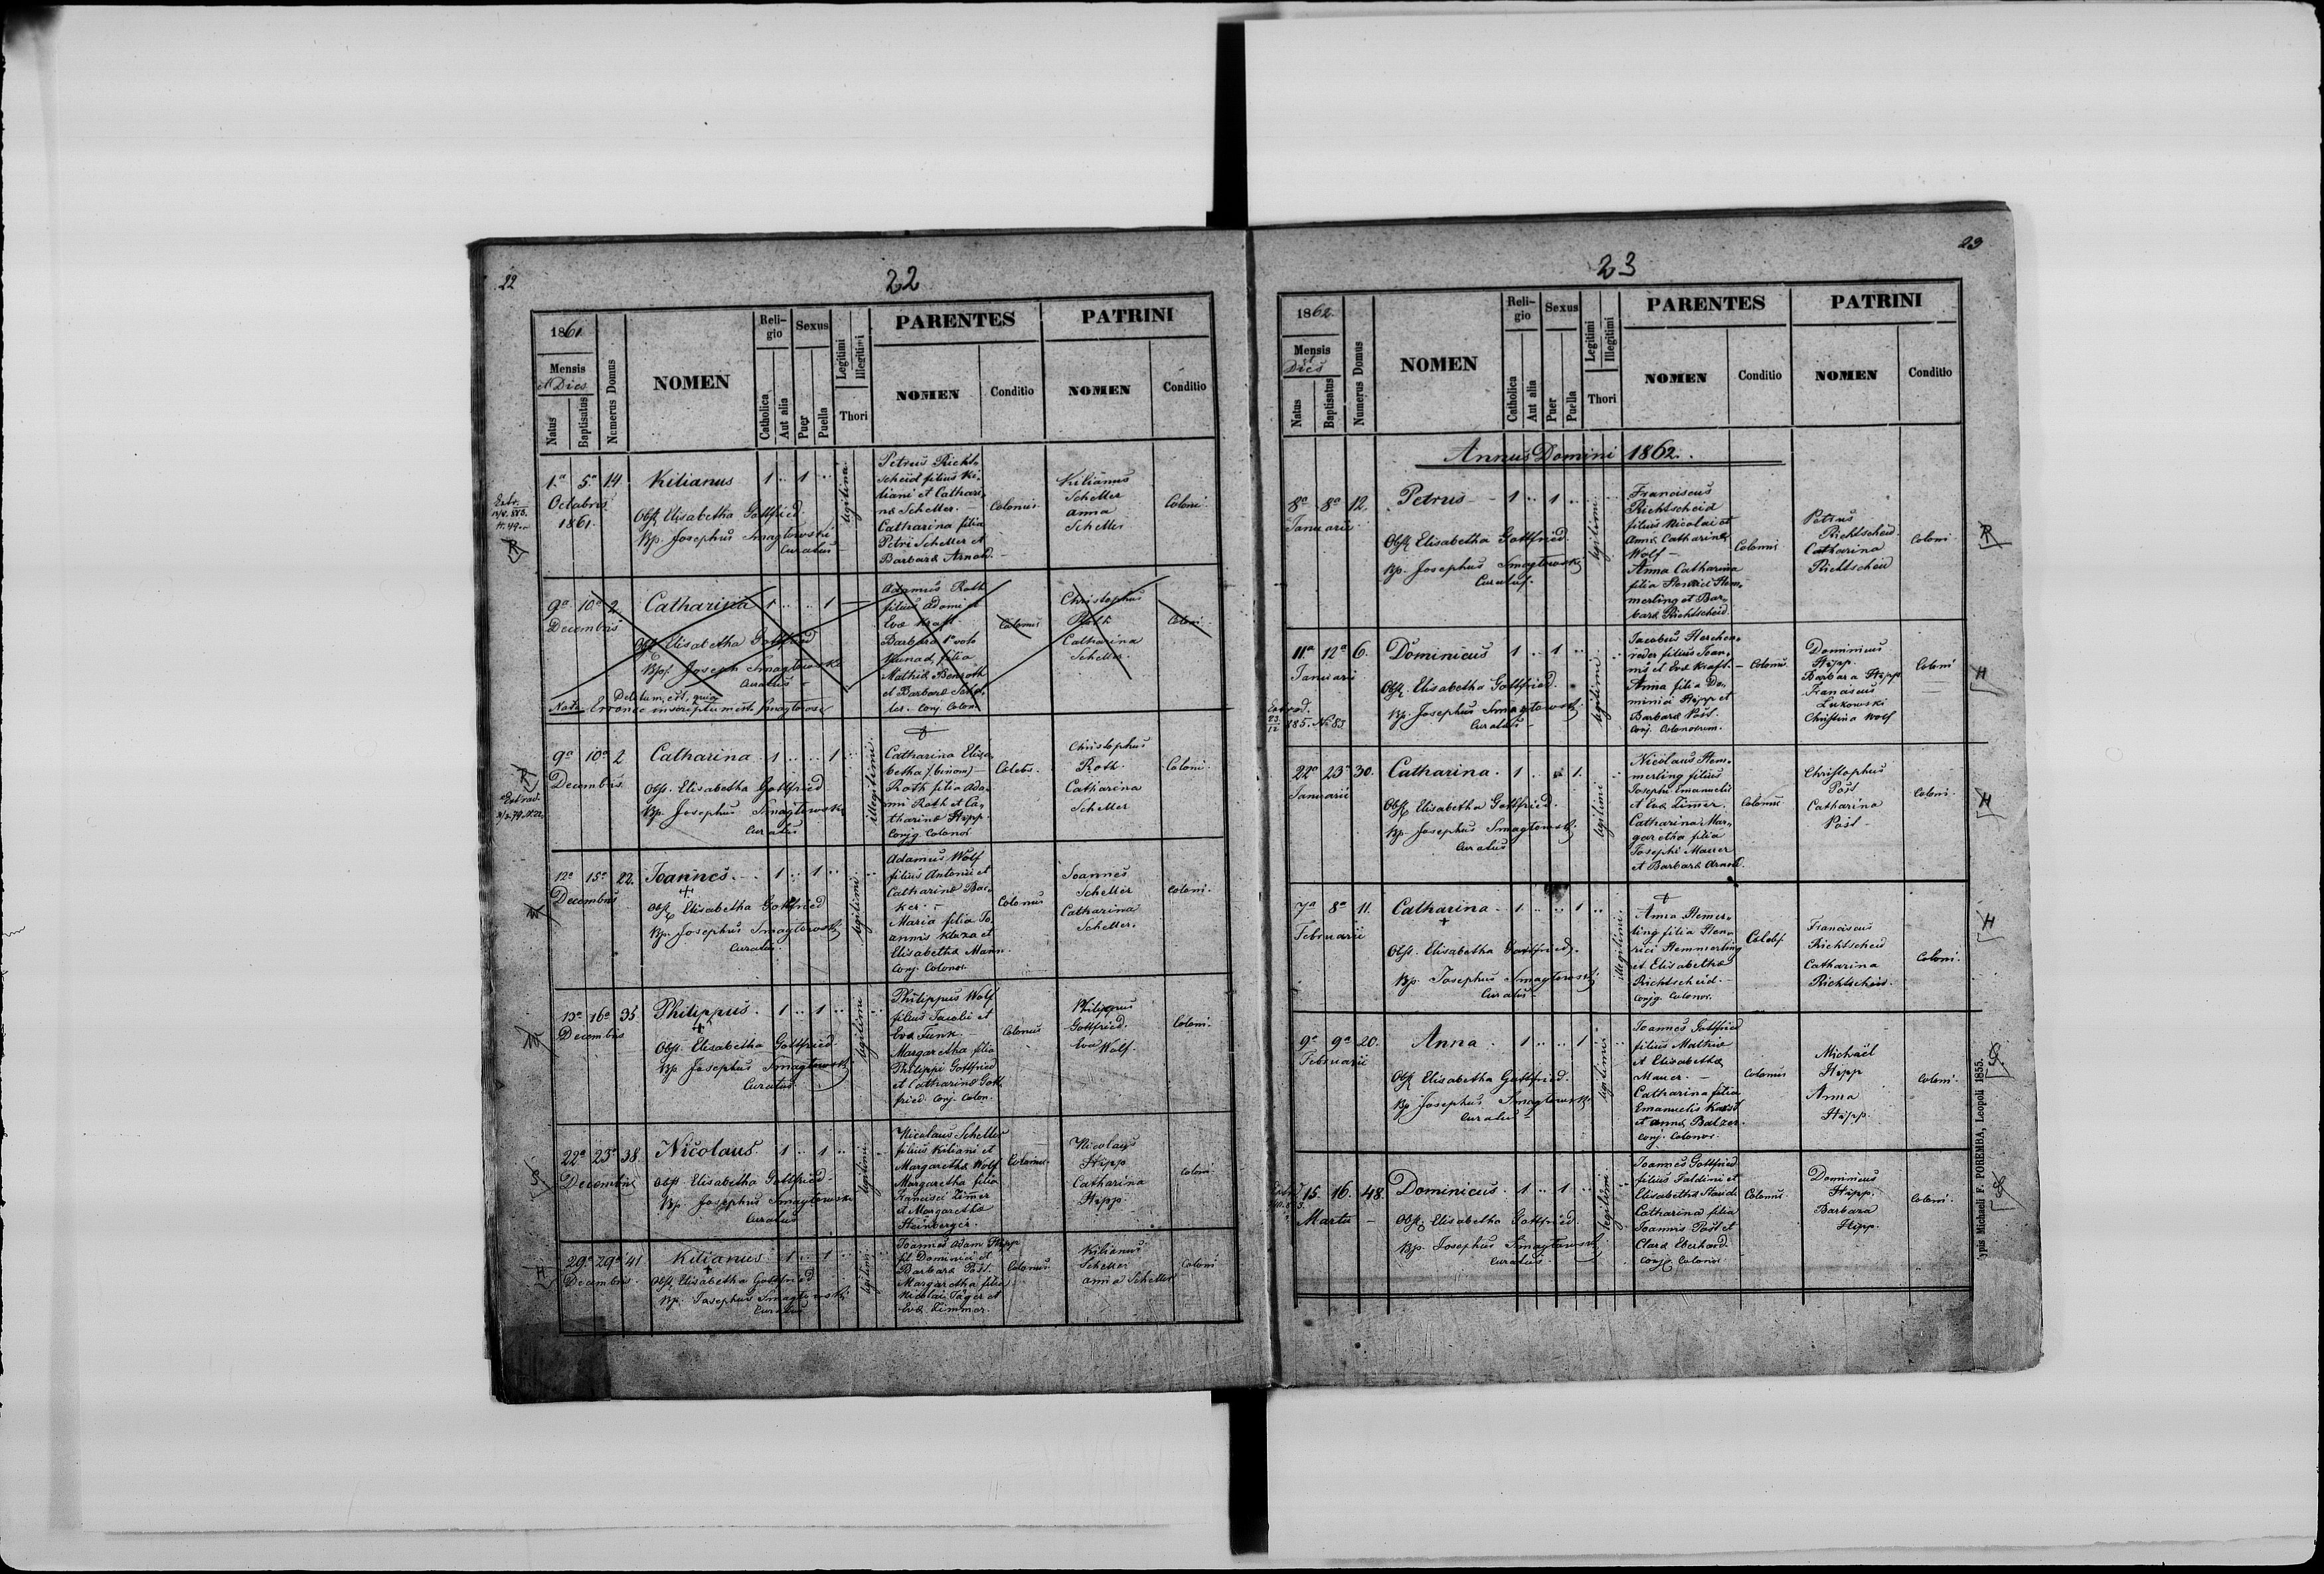 22
22
1861
Mensis
et Dies
Natus
Baptisatus
Numerus Domus
NOMEN
Reli-
gio
Catholica
Aut alia
Sexus
Puer
Puella
Legitimi
Illegitimi
Thori
PARENTES
NOMEN
Conditio
PATRINI
NOMEN
Conditio
1.a 5.a 14 Kilianus 1 .. 1 ..
Octobris
1861.
Obst. Elisabetha Gottfried.
Bp. Josephus Smagłowski
Curatus
legitima.
Petrus Richt-
scheid filius Ki-
liani et Cathari-
næ Scheller. —
Catharina filia
Petri Scheller et
Barbaræ Arnold. —
Colonus
Kilianus
Scheller
Anna
Scheller
Coloni
Extr.
R
9a 10a 2 Catharina 1 .. .. 1
Decembris
Obst. Elisabetha Gottfried
Bp. Joseph Smagłowski
Curatus —
Deletum est, quia
Nota. Erronee inscriptum est. Smagłowski
Adamus Roth
filius Adami et
Evæ Kraft.
Barbara 1o voto
filia
Mathiæ Benroth
et Barbaræ Schel-
ler. Conj. Colon.
Colonus
Christophus
Roth
Catharina
Scheller.
Coloni
9a 10a 2 Catharina 1 .. .. 1
Decembris
Obst. Elisabetha Gottfried
Bp. Josephus Smagłowski
Curatus
illegitimi.
Catharina Elisa-
betha (binom) —
Roth filia Ada-
mi Roth et Ca-
tharinæ Hipp.
Conjg. Colonor.
Cælebs.
Christophus
Roth.
Catharina
Scheller
Coloni
R
12a 15a 22. Joannes. 1 .. 1 ..
Decembris
Obst. Elisabetha Gottfried
Bp. Josephus Smagłowski
Curatus.
legitimi.
Adamus Wolf
filius Antonii et
Catharinæ Bac-
ker. —
Maria filia Jo-
annis Kluza et
Elisabethæ Mann.
Conj. Colonor.
Colonus
Joannes
Scheller
Catharina
Scheller.
Coloni.
W
13a 16a 35 Philippus. 1 .. 1 ..
Decembris
Obst. Elisabetha Gottfried.
Bp. Josephus Smagłowski
Curatus.
legitimi
Philippus Wolf
filius Jacobi et
Evæ Funk.
Margaretha filia
Philippi Gottfried
et Catharinæ Gott-
fried. Conj. Colon.
Colonus
Philippus
Gottfried.
Eva Wolf.
Coloni.
W
22a 23a 38. Nicolaus. 1 .. 1 ..
Decembris
Obst. Elisabetha Gottfried.
Bp. Josephus Smagłowski
Curatus
legitimi.
Nicolaus Scheller
filius Kiliani et
Margarethæ Wolf
Margaretha filia
Francisci Zimer
et Margarethæ
Steinberger.
Colonus
Nicolaus
Hipp
Catharina
Hipp.
Coloni.
S
29.a 29a 41 Kilianus 1 .. 1 ..
Decembris.
Obst. Elisabetha Gottfried
Bp. Josephus Smagłowski
Curatus
legitimi
Joannes Adam Hipp
fil. Dominici et
Barbaræ Post.
Margaretha filia
Nicolai Jäger et
Evæ Zimmer.
Colonus
Kilianus
Scheller
Anna Scheller
Coloni
H
23
23
1862.
Mensis
et Dies
Natus
Baptisatus
Numerus Domus
NOMEN
Reli-
gio
Catholica
Aut alia
Sexus
Puer
Puella
Legitimi
Illegitimi
Thori
PARENTES
NOMEN
Conditio
PATRINI
NOMEN
Conditio
Annus Domini 1862.
8a 8a 12. Petrus — 1 .. 1 ..
Januarii
Obst. Elisabetha Gottfried.
Bp. Josephus Smagłowski
Curatus.
legitimi.
Franciscus
Richtscheid
filius Nicolai et
Annæ Catharinæ
Wolf —
Anna Catharina
filia Henrici Hem-
merling et Bar-
baræ Richtscheid.
Colonus
Petrus
Richtscheid
Catharina
Richtscheid
Coloni
R
11a 12a 6. Dominicus 1 .. 1 ..
Januarii
Obst. Elisabetha Gottfried.
Bp. Josephus Smagłowski
Curatus —
legitimi.
Jacobus Herchen-
reder filius Joan-
nis et Evæ Kraft. —
Anna filia Do-
minici Hipp et
Barbaræ Post.
Conj. Colonorum.
Colonus.
Dominicus
Hipp.
Barbara Hipp
Franciscus
Lukowski
Christina Wolf
Coloni
H
22a 23a 30. Catharina. 1 .. .. 1.
Januarii
Obst. Elisabetha Gottfried.
Bp. Josephus Smagłowski
Curatus
legitimi
Nicolaus Hem-
merling filius
Josephi Emanuelis
et Evæ Zimer.
Catharina Mar-
garetha filia
Josephi Mauer
et Barbaræ Arnold.
Colonus
Christophus
Post
Catharina
Post —
Coloni.
H
7a 8a 11. Catharina — 1. .. .. 1 ..
Februarii
Obst. Elisabetha Gottfried.
Bp. Josephus Smagłowski
Curatus —
illegitimi.
Anna Hemer-
ling filia Hen-
rici Hemmerling
et Elisabethæ
Richtscheid. —
Conjg. Colonor.
Cælebs
Franciscus
Richtscheid
Catharina
Richtscheid.
Coloni.
H
9a 9a 20. Anna. 1 .. .. 1
Februarii
Obst. Elisabetha Gottfried.
Bp. Josephus Smagłowski
Curatus —
legitimi
Joannes Gottfried
filius Mathiæ
et Elisabethæ
Mauer. —
Catharina filia
Emanuelis Karst
et Annæ Balzer.
Conj. Colonor.
Colonus
Michaël
Hipp
Anna
Hipp.
Coloni.
G
15. 16. 48. Dominicus. 1 .. 1 ..
Martii —
Obst. Elisabetha Gottfried.
Bp. Josephus Smagłowski
Curatus
legitimi.
Joannes Gottfried
filius
Elisabethæ
Catharina filia
Joannis Post et
Claræ Eberhard.
Conjg. Colonor
Colonus
Dominicus
Hipp.
Barbara
Hipp.
Coloni.
G
ypis Michaeli F. POREMBA, Leopoli 1855.